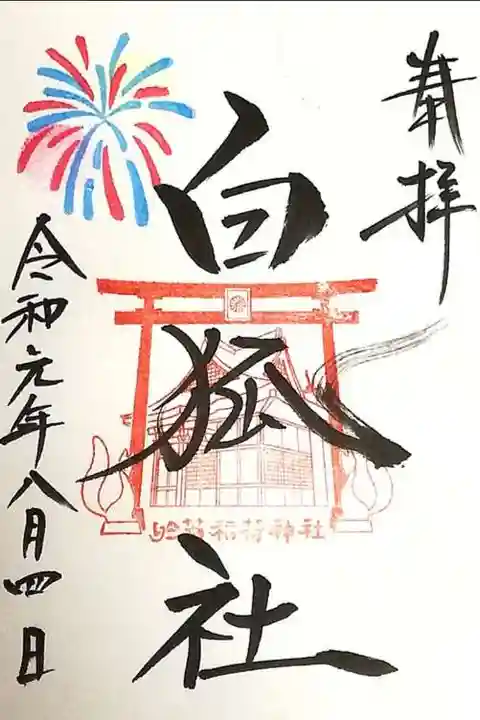 奉拝
白狐社
稲荷神社
令和元年八月四日